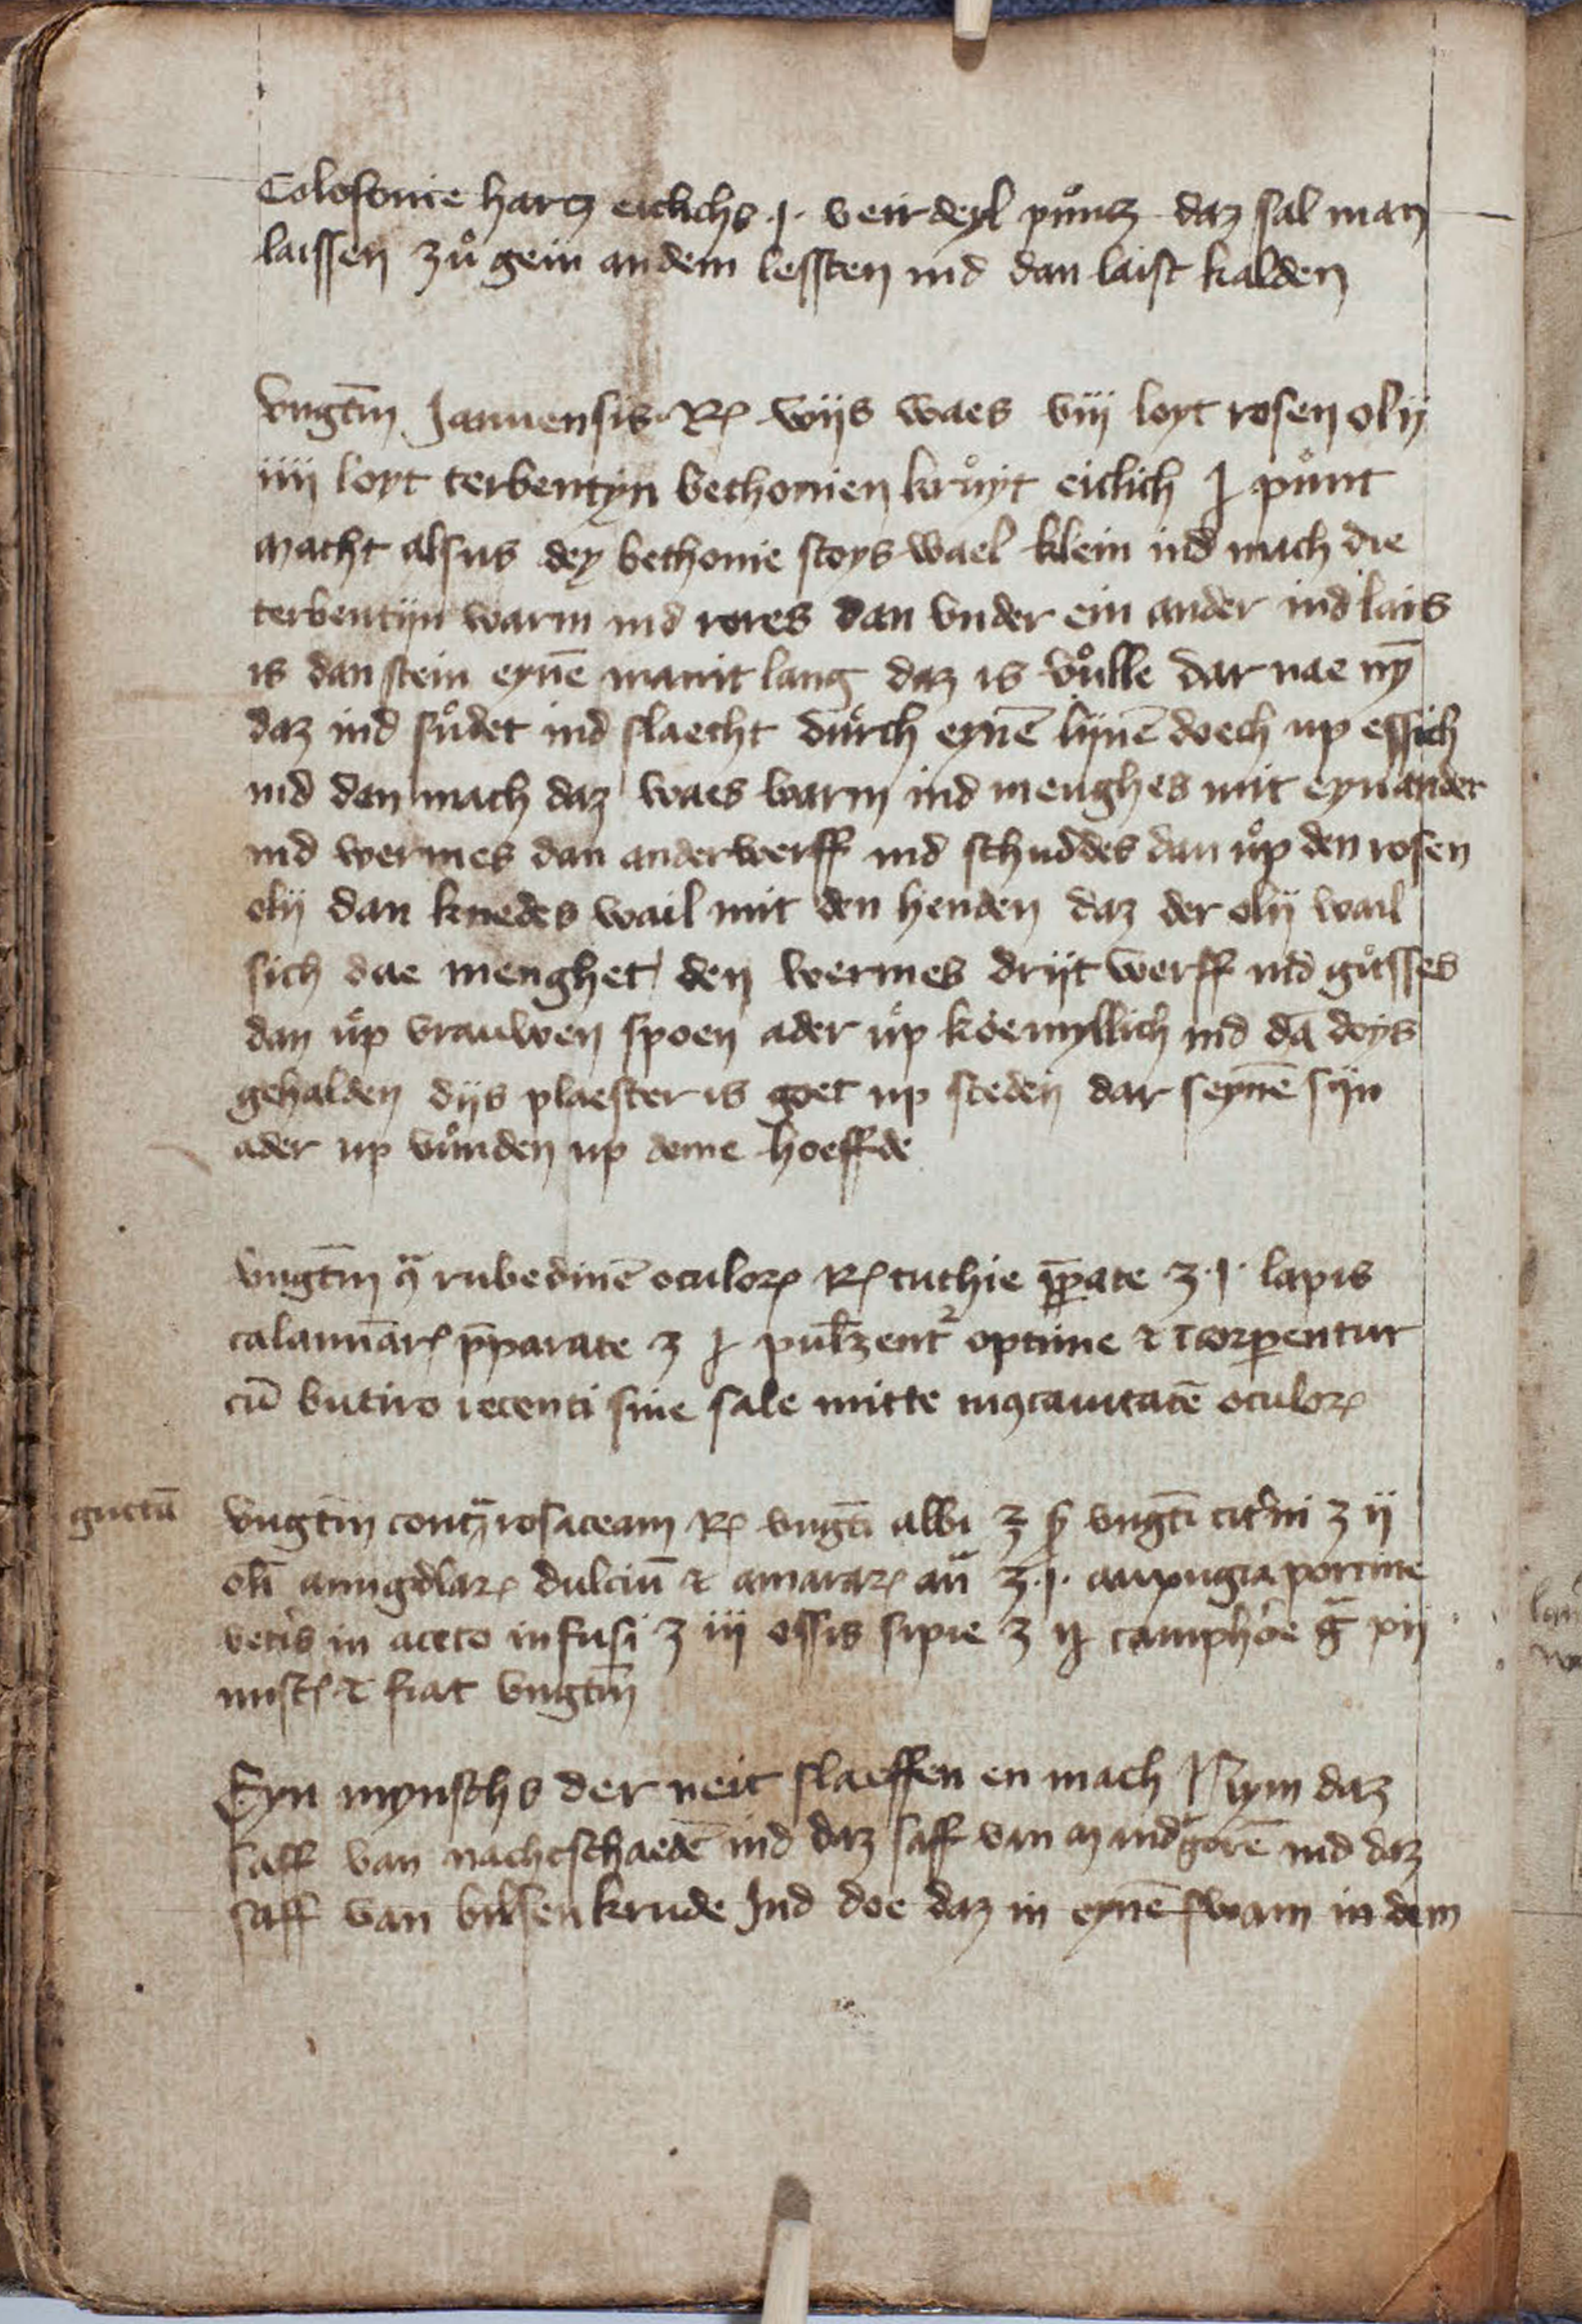 Colofonie hartz eicklichs .j. veirdeyl puͦntz daz sal man
laissen zuͦ gein an dem lessten ind dan laist kalden
Vngtm̄ Januensis Rp wijs waes viij loyt rosen olij
iiij loyt terbentyn bethonien kruͦyt eicklich j puͦnt
macht alsus dey bethonie stoys wael klein ind mach die
terbentijn warm ind rores dan vnder ein ander ind lais
is dan stein eynē manit lang daz is vuͦlle dar nae nȳ
daz ind suͦdet ind slaecht duͦrch eynē lijnē doech up essich
ind dan mach daz waes warm ind menghes mit eynander
ind wermes dan anderwerff ind schuddes dan uͦp den rosen
olij dan knedes wail mit den henden daz der olij wail
sich dae menghet den wermes drijt werff ind guͦsses
dan uͦp vrauwen spoen ader uͦp koemyllich ind dā doys
gehalden dijs plaester is goet up steden dar seynē sijn
ader up vuͦnden up deme hoeffde
Vngtm̄ ꝯͣ rubedinē oculoꝝ Rp tuthie p̄pate ʒ .j. lapis
calaminarꝭ p̄parate ʒ j pulꝭzent² optime ⁊ īcorpentur
cū butiro recenti sine sale mitte in ꝯcauitatē oculoꝝ
guttā
Vngtm̄ contͣ rosaceam Rp vngt̄i albi ʒ ꝭ vngt̄i citⁱni ʒ ij
oli̅ amigdlaꝝ dulciū ⁊ amaraꝝ an̄ ʒ .j. auxugia porcine
vetis in aceto infusi ʒ iij ossis sipie ʒ ij camphoe gͣ xij
miscꝭ ⁊ fiat vngtm̄
Eyn mynschs der neit slaeffen en mach Nym daz
saff van nachtschaedē ind daz saff van mandͣgorē ind daz
saff van bilsenkrude Ind doe daz in eynē swam in dem